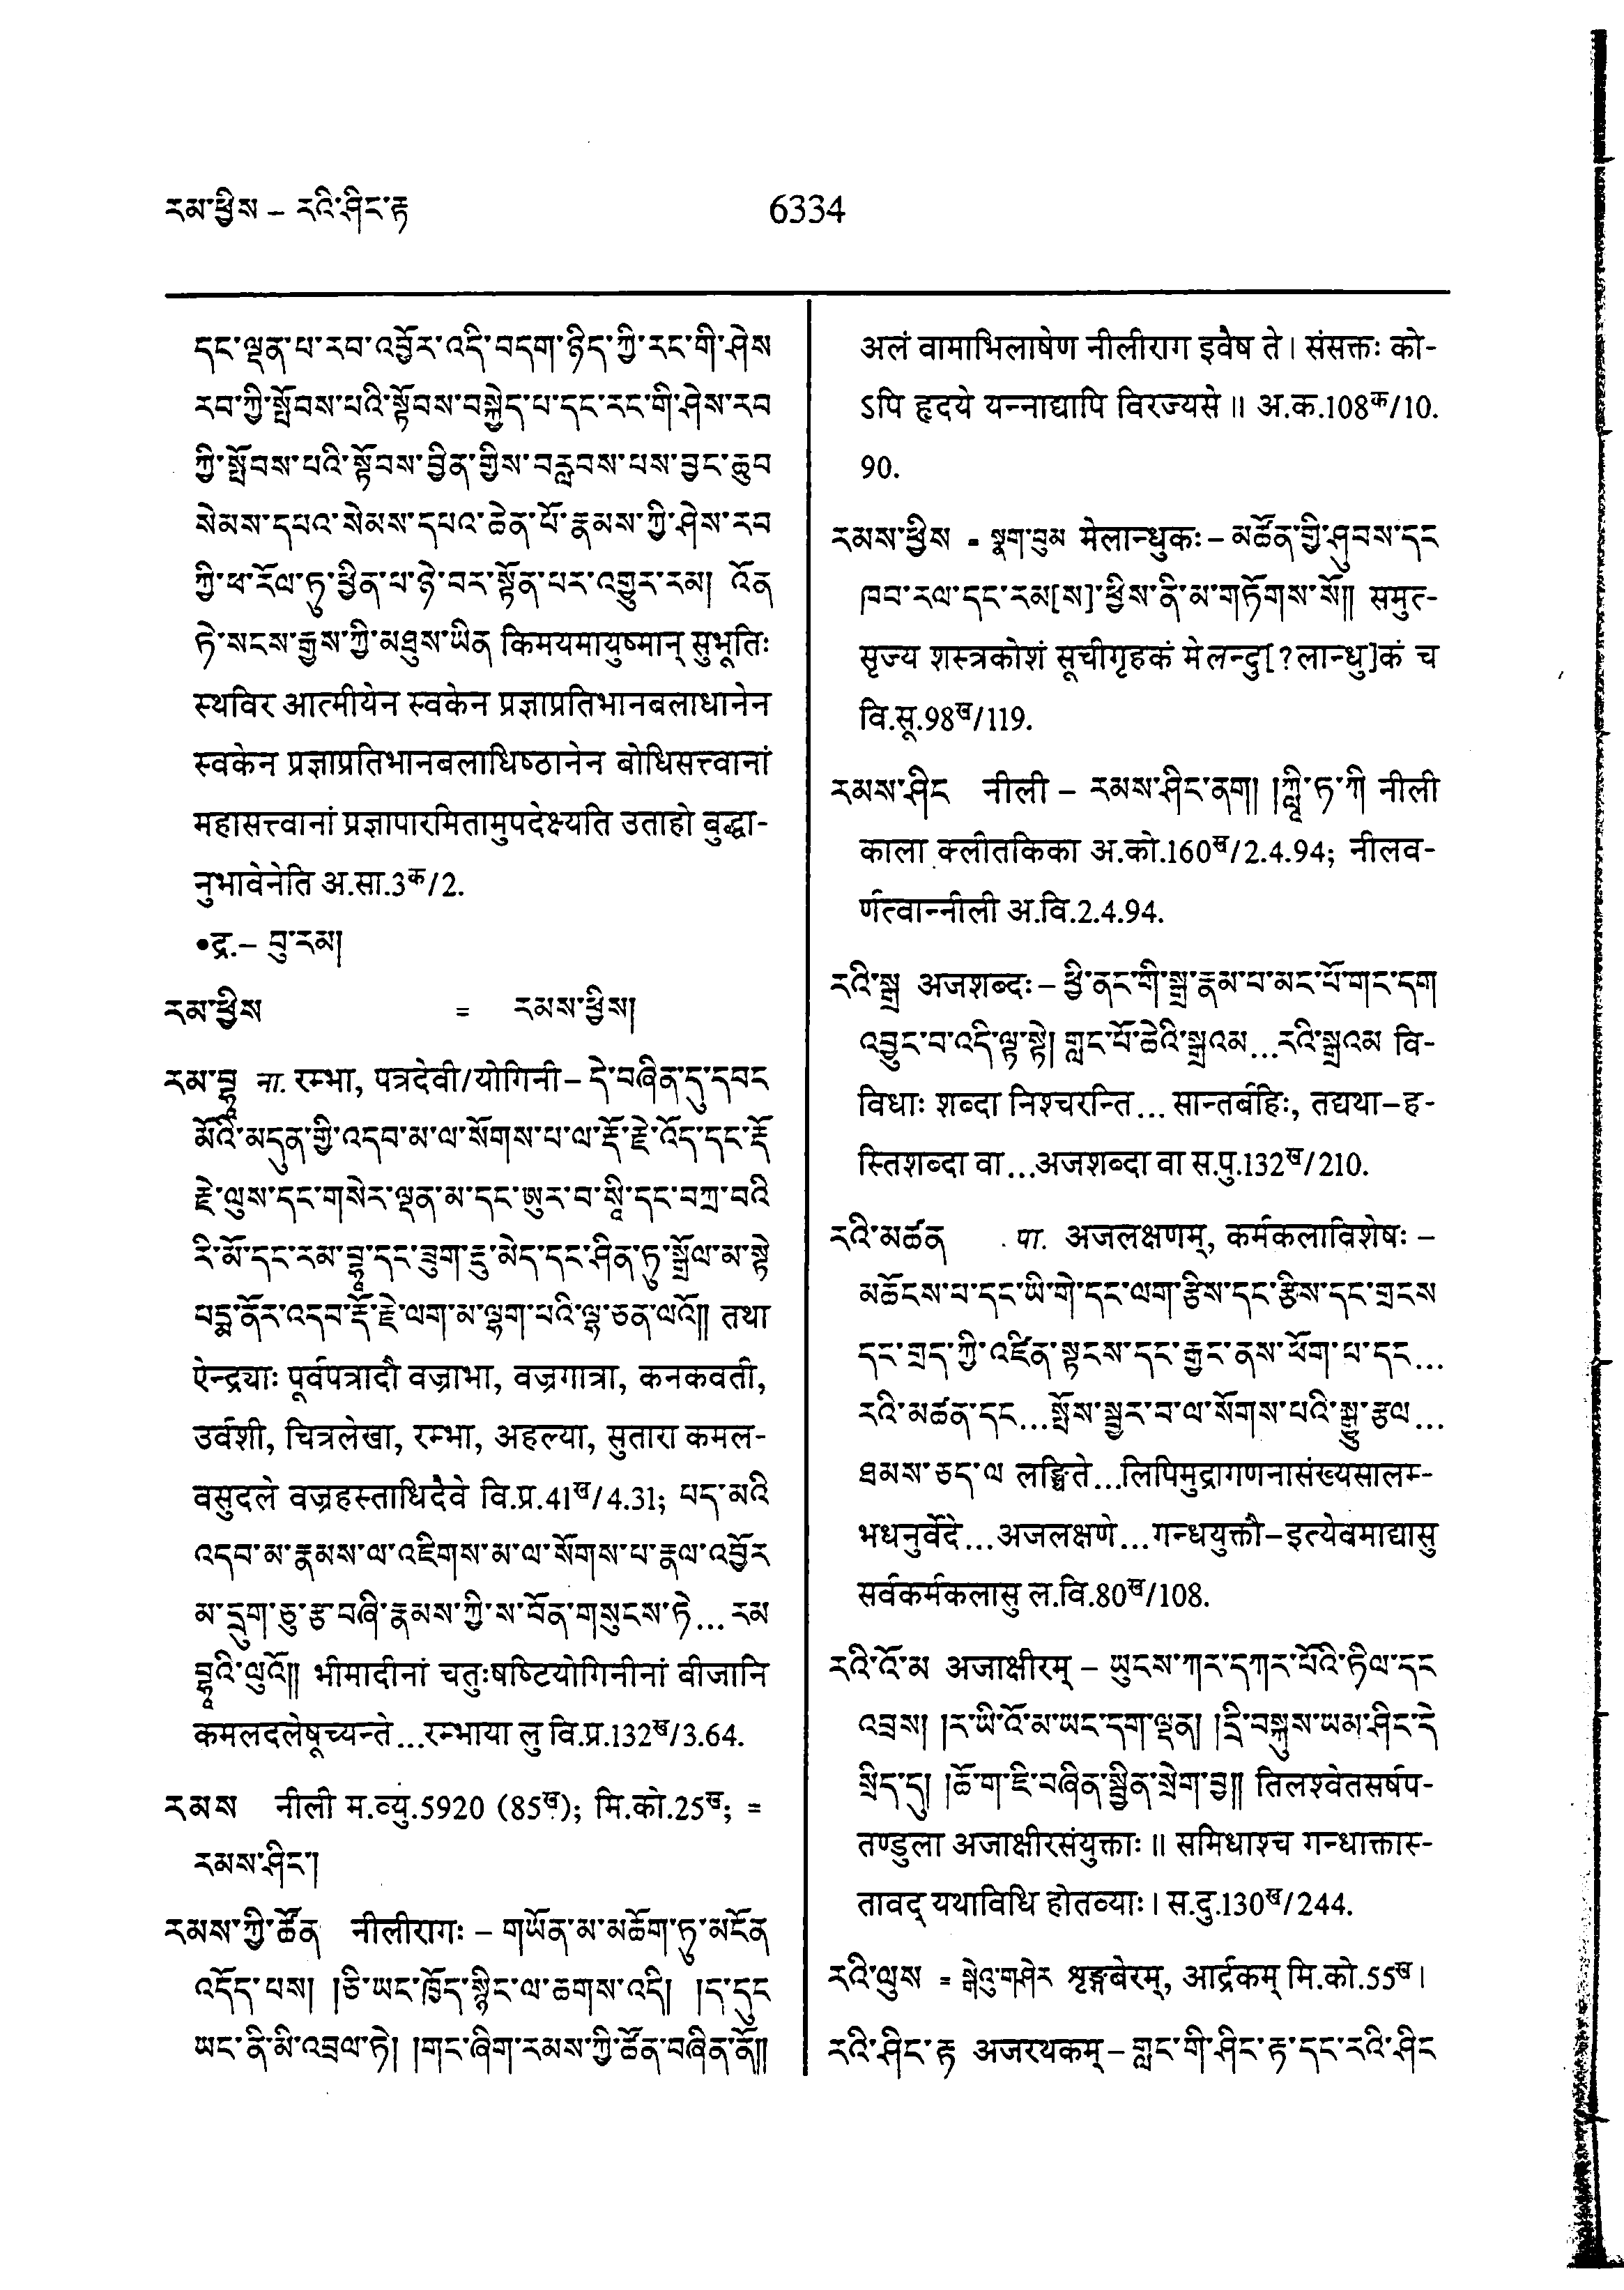 རམ་ཕྱིས – རའི་ཤིང་རྟ
6334
དང་ལྡན་པ་རབ་འབྱོར་འདི་བདག་ཉིད་ཀྱི་རང་གི་ཤེས
རབ་ཀྱི་སྤོབས་པའི་སྟོབས་བསྐྱེད་པ་དང་རང་གི་ཤེས་རབ
ཀྱི་སྤོབས་པའི་སྟོབས་བྱིན་གྱིས་བརླབས་པས་བྱང་ཆུབ
སེམས་དཔའ་སེམས་དཔའ་ཆེན་པོ་རྣམས་ཀྱི་ཤེས་རབ
ཀྱི་ཕ་རོལ་ཏུ་ཕྱིན་པ་ཉེ་བར་སྟོན་པར་འགྱུར་རམ། འོན
ཏེ་སངས་རྒྱས་ཀྱི་མཐུས་ཡིན किमयमायुष्मान् सुभूतिः
स्थविर आत्मीयेन स्वकेन प्रज्ञाप्रतिभानबलाधानेन
स्वकेन प्रज्ञाप्रतिभानबलाधिष्ठानेन बोधिसत्त्वानां
महासत्त्वानां प्रज्ञापारमितामुपदेक्ष्यति उताहो बुद्धा-
नुभावेनेति अ.सा.3क/2.
•द्र.– བུ་རམ།
རམ་ཕྱིས = རམས་ཕྱིས།
རམ་བྷཱ ना. रम्भा, पत्रदेवी/योगिनी– དེ་བཞིན་དུ་དབང
མོའི་མདུན་གྱི་འདབ་མ་ལ་སོགས་པ་ལ་རྡོ་རྗེ་འོད་དང་རྡོ
རྗེ་ལུས་དང་གསེར་ལྡན་མ་དང་ཨུར་བ་སཱི་དང་བཀྲ་བའི
རི་མོ་དང་རམ་བྷཱ་དང་ཟུག་རྔུ་མེད་དང་ཤིན་ཏུ་སྒྲོལ་མ་སྟེ
པདྨ་ནོར་འདབ་རྡོ་རྗེ་ལག་མ་ལྷག་པའི་ལྷ་ཅན་ལའོ།། तथा
ऐन्द्र्याः पूर्वपत्रादौ वज्राभा, वज्रगात्रा, कनकवती,
उर्वशी, चित्रलेखा, रम्भा, अहल्या, सुतारा कमल-
वसुदले वज्रहस्ताधिदैवे वि.प्र.41ख/4.31; པད་མའི
འདབ་མ་རྣམས་ལ་འཇིགས་མ་ལ་སོགས་པ་རྣལ་འབྱོར
མ་དྲུག་ཅུ་རྩ་བཞི་རྣམས་ཀྱི་ས་བོན་གསུངས་ཏེ... རམ
བྷཱའི་ལུའོ།། भीमादीनां चतुःषष्टियोगिनीनां वीजानि
कमलदलेषूच्यन्ते...रम्भाया लु वि.प्र.132ख/3.64.
རམས नीली म.व्यु.5920 (85ख); मि.को.25ख; =
རམས་ཤིང་།
རམས་ཀྱི་ཚོན नीलीरागः – གཡོན་མ་མཆོག་ཏུ་མངོན
འདོད་པས། །ཅི་ཡང་ཁྱོད་སྙིང་ལ་ཆགས་འདི། །ད་དུང
ཡང་ནི་མི་འབྲལ་ཏེ། །གང་ཞིག་རམས་ཀྱི་ཚོན་བཞིན་ནོ།།
अलं वामाभिलाषेण नीलीराग इवैष ते। संसक्तः को-
ऽपि हृदये यन्नाद्यापि विरज्यसे॥ अ.क.108क/10.
90.
རམས་ཕྱིས = སྣག་བུམ मेलान्धुकः– མཚོན་གྱི་ཤུབས་དང
ཁབ་རལ་དང་རམ[ས]་ཕྱིས་ནི་མ་གཏོགས་སོ།། समुत-
सृज्य शस्त्रकोशं सूचीगृहकं मेलन्दु[?लान्धु]कं च
वि.सू.98ख/119.
རམས་ཤིང नीली – རམས་ཤིང་ནག། །ཀླཱི་ཏ་ཀི नीली
काला क्लीतकिका अ.को.160ख/2.4.94; नीलव-
र्णत्वान्नीली अ.वि.2.4.94.
རའི་སྒྲ अजशब्दः– ཕྱི་ནང་གི་སྒྲ་རྣམ་པ་མང་པོ་གང་དག
འབྱུང་བ་འདི་ལྟ་སྟེ། གླང་པོ་ཆེའི་སྒྲའམ...རའི་སྒྲའམ वि-
विधाः शब्दा निश्चरन्ति... सान्तर्बहिः, तद्यथा–ह-
स्तिशब्दा वा...अजशब्दा वा स.पु.132ख/210.
རའི་མཚན पा. अजलक्षणम्, कर्मकलाविशेषः –
མཆོངས་པ་དང་ཡི་གེ་དང་ལག་རྩིས་དང་རྩིས་དང་གྲངས
དང་གྲད་ཀྱི་འཛིན་སྟངས་དང་རྒྱང་ནས་ཕོག་པ་དང...
རའི་མཚན་དང...སྤོས་སྦྱར་བ་ལ་སོགས་པའི་སྒྱུ་རྩལ...
ཐམས་ཅད་ལ लङ्घिते...लिपिमुद्रागणनासंख्यसालम्-
भधनुर्वेदे...अजलक्षणे...गन्धयुक्तौ–इत्येवमाद्यासु
सर्वकर्मकलासु ल.वि.80ख/108.
རའི་འོ་མ अजाक्षीरम् – ཡུངས་ཀར་དཀར་པོའི་ཏིལ་དང
འབྲས། །ར་ཡི་འོ་མ་ཡང་དག་ལྡན། །དྲི་བསྐུས་ཡམ་ཤིང་དེ
སྲིད་དུ། །ཆོ་ག་ཇི་བཞིན་སྦྱིན་སྲེག་བྱ།། तिलश्वेतसर्षप-
तण्डुला अजाक्षीरसंयुक्ताः॥ समिधाश्च गन्धाक्तास्-
तावद् यथाविधि होतव्याः। स.दु.130ख/244.
རའི་ལུས = སྒེའུ་གཤེར शृङ्गबेरम्, आर्द्रकम् मि.को.55ख।
རའི་ཤིང་རྟ अजरथकम्– གླང་གི་ཤིང་རྟ་དང་རའི་ཤིང